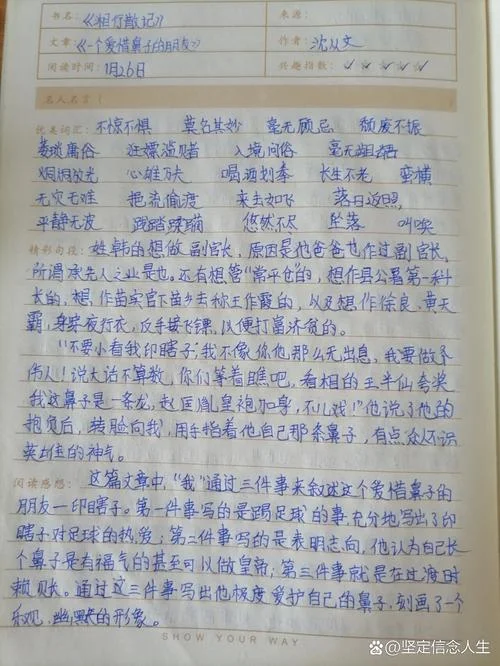 书名：《湘行散记》 来源：
文章：《一个爱惜鼻子的朋友》 作者：沈从文
阅读时间：1月26日 兴趣指数：☆☆☆☆☆
名人名言（
优美词汇：不惊不惧 莫名其妙 毫无顾忌 颓废不振
萎琐庸俗 狂嫖滥赌 入境问俗 毫无龃龉
炯炯放光 心雄万夫 喝酒划拳 长生不老 蛮横
无灾无难 挹流偷渡 来去如飞 落日返照
平静无波 践踏蹂躏 悠然不尽 坠落 叫唤
精彩句段：姓韩的想做副官长，原因是他爸爸也作过副官长，
所谓承先人之业是也。还有想管“常平仓”的，想作县公署第一科
长的，想作苗实官下苗乡去称王作霸的，以及想作徐良、黄天
霸，身穿夜行衣，反手接飞镖，以便打富济贫的。
“不要小看我印瞎子，我不像你他那么无出息，我要做个
伟人！说大话不算数，你们等着瞧吧，看相的王半仙夸奖
我这鼻子是一条龙，赵匡胤皇袍加身，不儿戏！”他说了他的
抱负后，转脸向我，用手指着他自己那条鼻子，有点众人不识
英雄的神气。
阅读感想：这篇文章中，“我”通过三件事来叙述这个爱惜鼻子的
朋友—印瞎子。第一件事写的是踢足球的事，充分地写出了印
瞎子对足球的热爱；第二件事写的是表明志向，他认为自己长
个鼻子是有福气的甚至可以做皇帝；第三件事就是在过渡时
赖账。通过这三件事写出他极度爱护自己的鼻子，刻画了一个
乐观，幽默的形象。
SHOW YOUR WAY
@坚定信念人生